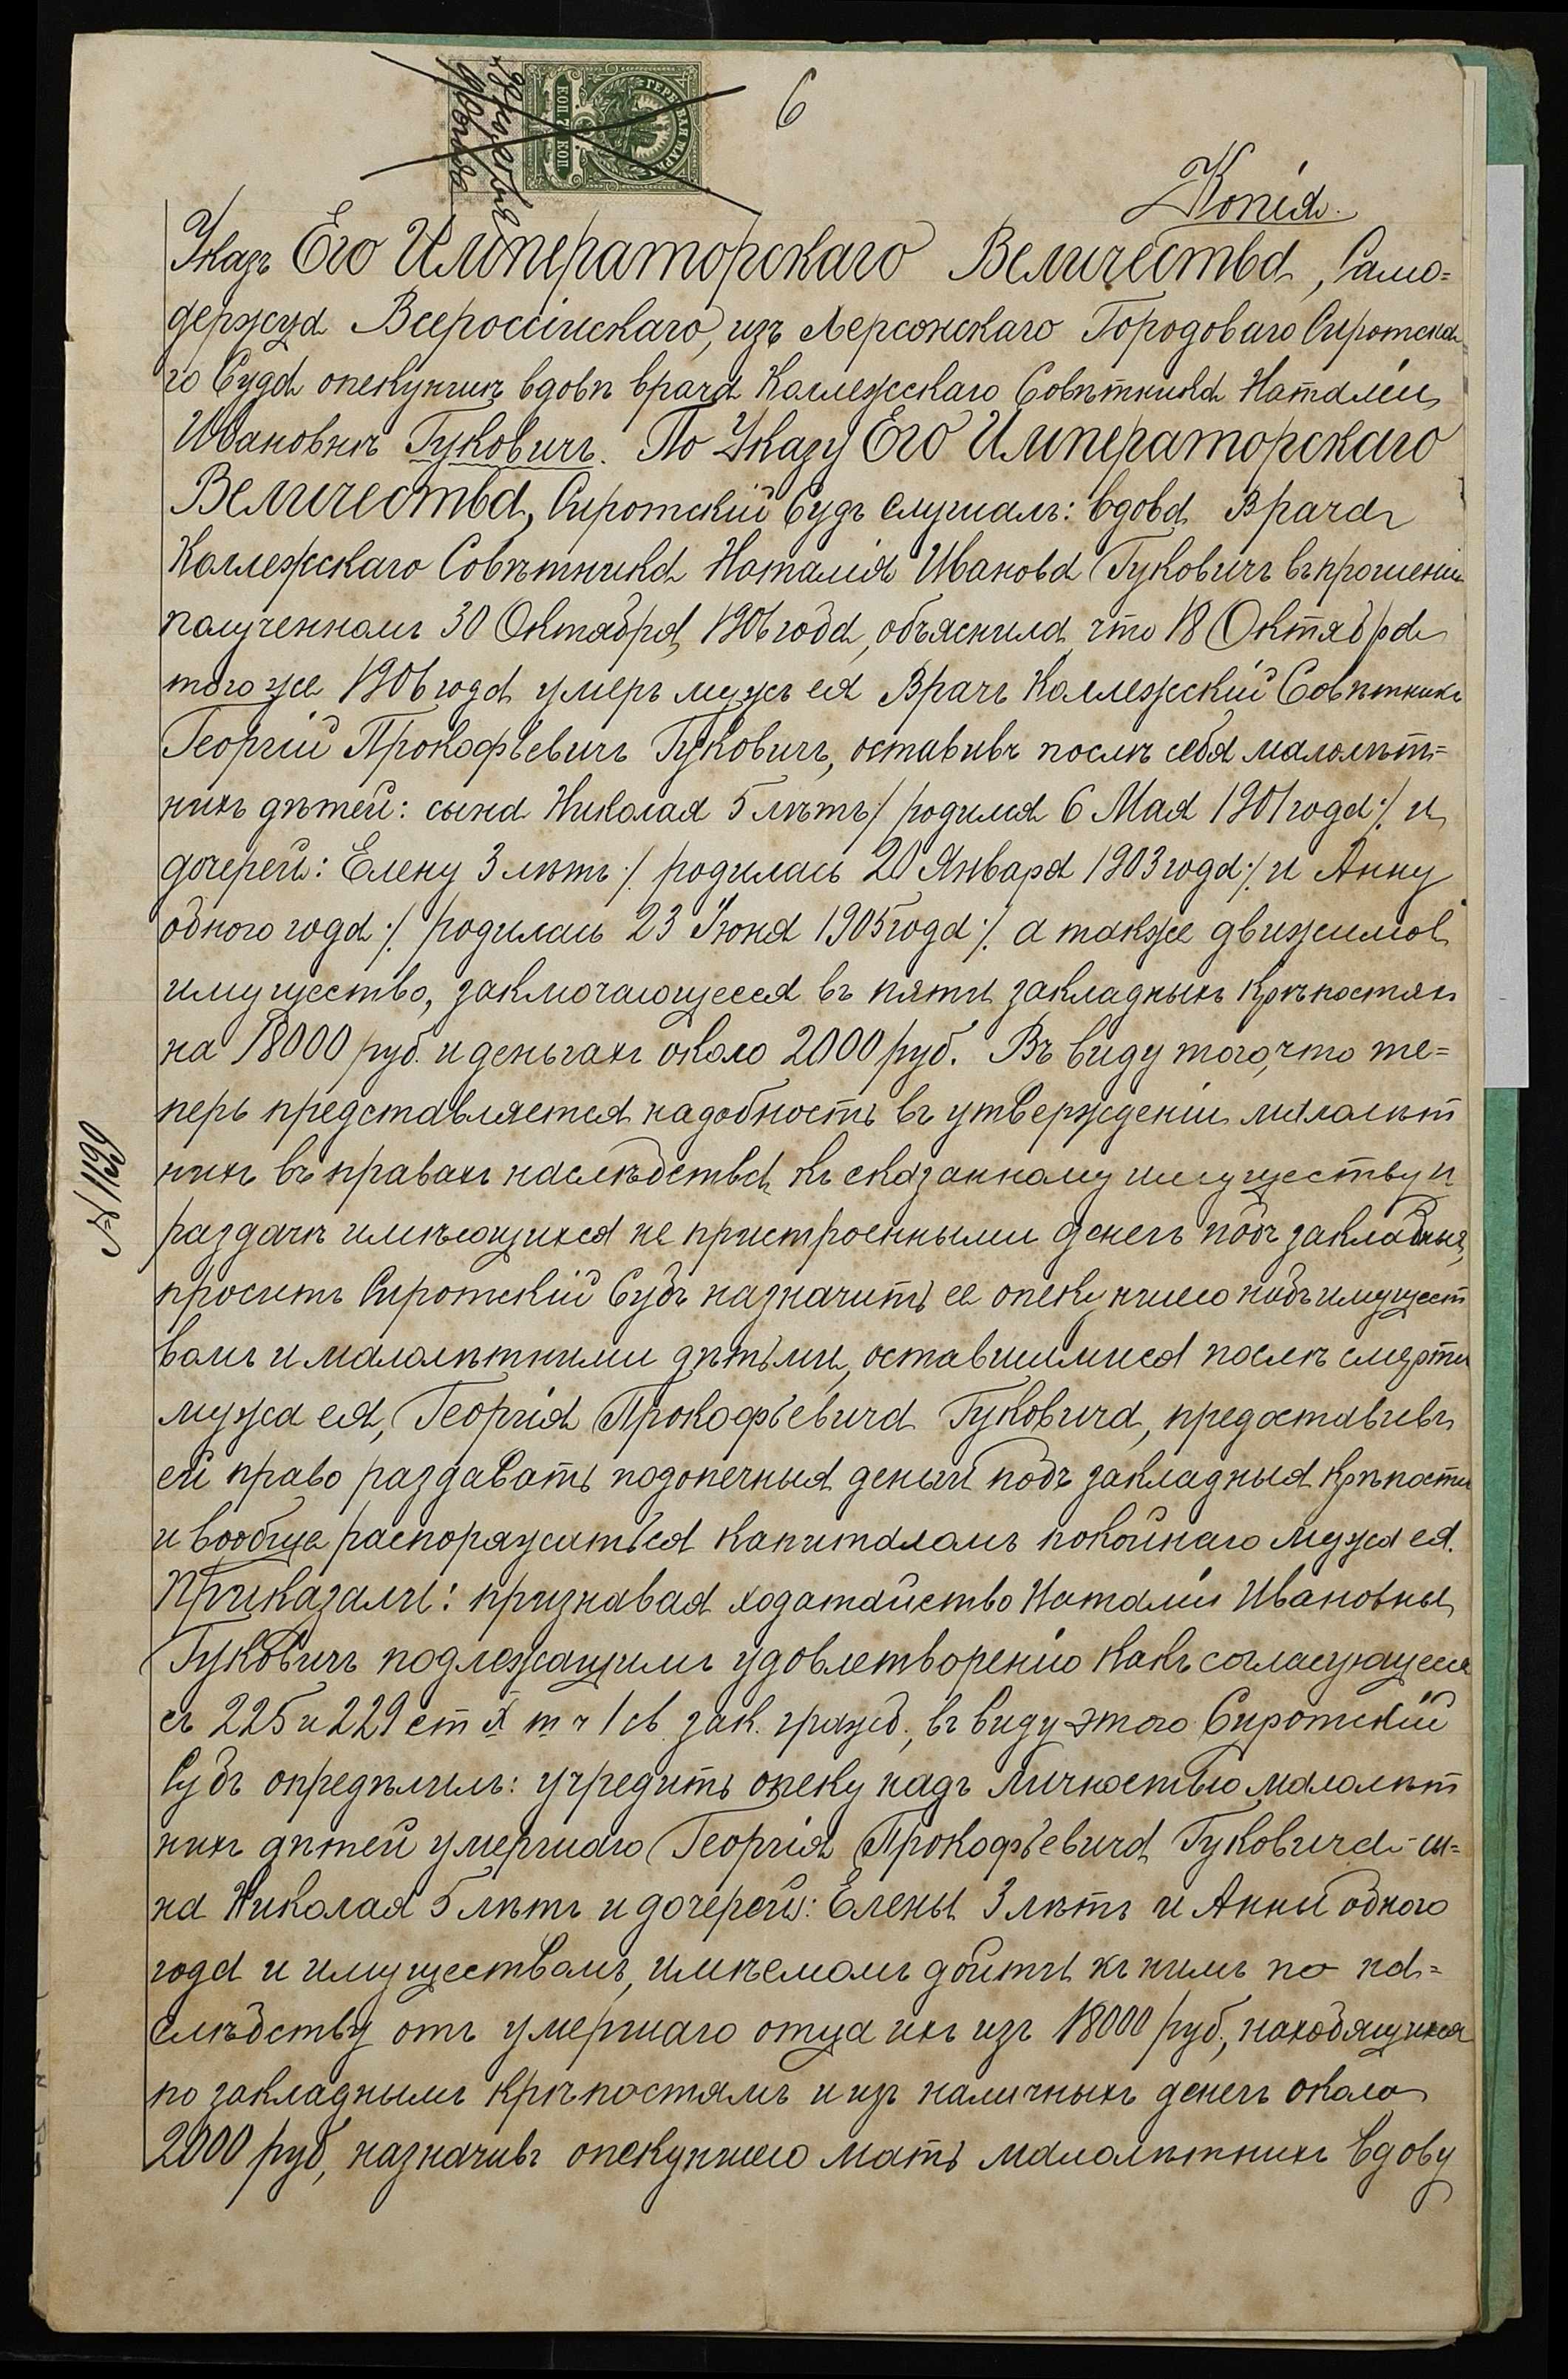 6
Копія.
Указъ Его Императорскаго Величества, Само=
держца Всероссійскаго, изъ Херсонскаго Городоваго Сиротска-
го Суда опекуншѣ вдовѣ врача Коллежскаго Совѣтника Наталіи
Ивановнѣ Гуковичъ. По Указу Его Императорскаго
Величества, Сиротскій Судъ слушалъ: вдова Врача
Коллежскаго Совѣтника Наталія Иванова Гуковичъ въ прошеніи
полученномъ 30 Октября 1906 года, объяснила что 18 Октября
того же 1906 года умеръ мужъ ея Врачъ Коллежскій Совѣтникъ
Георгій Прокофьевичъ Гуковичъ, оставивъ послѣ себя малолѣт=
нихъ дѣтей: сына Николая 5 лѣтъ /. родился 6 Мая 1901 года /. и
дочерей: Елену 3 лѣтъ /. родилась 20 Января 1903 года /. и Анну
одного года /. родилась 23 Іюня 1905 года /. а также движимое
имущество, заключающееся въ пяти закладныхъ крѣпостяхъ
на 18000 руб. и деньгахъ около 2000 руб. Въ виду того, что те=
перь представляется надобность въ утвержденіи малолѣт
нихъ въ правахъ наслѣдства къ сказанному имуществу и
раздачѣ имѣющихся не пристроенными денегъ подъ закладныя,
проситъ Сиротскій Судъ назначить ее опекуншею надъ имущест
вомъ и малолѣтними дѣтьми, оставшимися послѣ смерти
мужа ея, Георгія Прокофьевича Гуковича, предоставивъ
ей право раздавать подопечныя деньги подъ закладныя крѣпости
и вообще распоряжаться капиталомъ покойнаго мужа ея.
Приказали: признавая ходатайство Наталіи Ивановны
Гуковичъ подлежащимъ удовлетворенію какъ согласующееся
съ 225 и 229 ст X т ч 1 св. зак. гражд., въ виду этого Сиротскій
Судъ опредѣлилъ: учредить опеку надъ личностью малолѣт
нихъ дѣтей умершаго Георгія Прокофьевича Гуковича - сы=
на Николая 5 лѣтъ и дочерей: Елены 3 лѣтъ и Анны одного
года и имуществомъ, имѣемомъ дойти къ нимъ по на=
слѣдству отъ умершаго отца ихъ изъ 18000 руб., находящихся
по закладнымъ крѣпостямъ и изъ наличныхъ денегъ около
2000 руб, назначивъ опекуншею мать малолѣтнихъ вдову
№ 1139
ГЕРБОВАЯ МАРКА